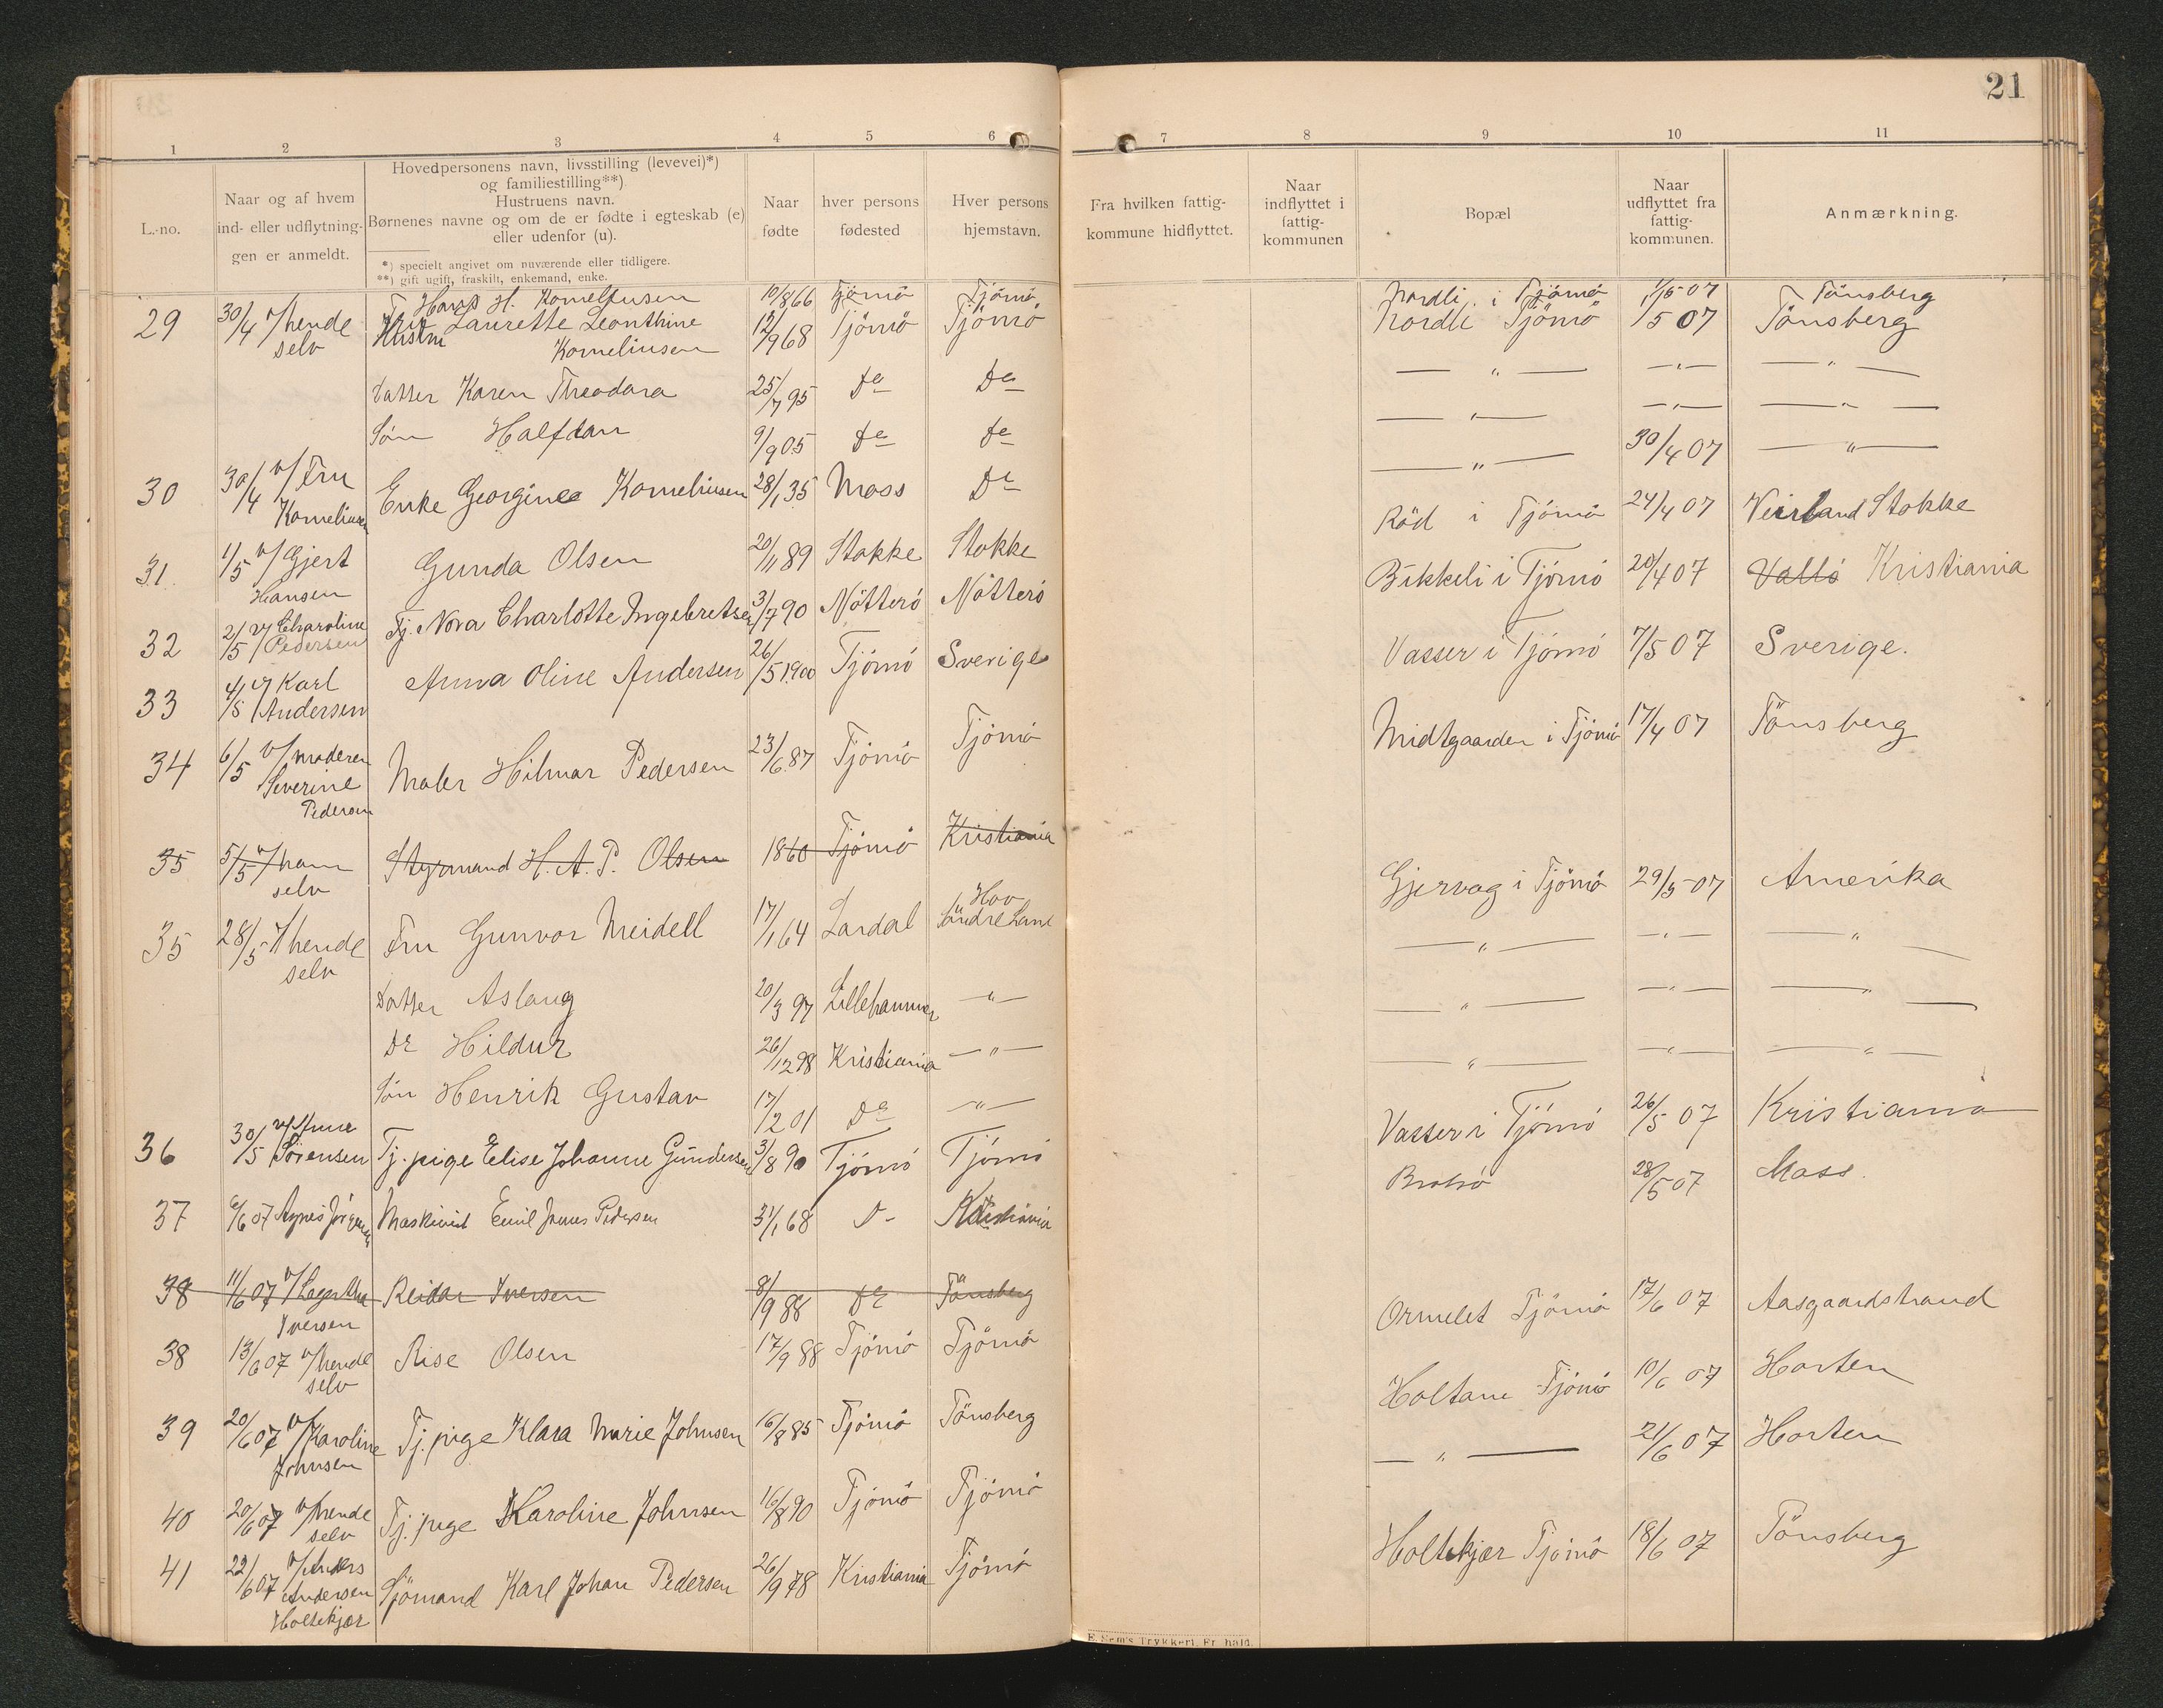 21
1 2 3 4 5 6 7 8 9 10 11
L.-no.
Naar og af hvem
ind- eller udflytnin-
gen er anmeldt.
Hovedpersonens navn, livsstilling (levevei)*)
og familiestilling**)
Hustruens navn.
Børnenes navne og om de er fødte i egteskab (e)
eller udenfor (u).
*) specielt angivet om nuværende eller tidligere.
**) gift ugift, fraskilt, enkemand, enke.
Naar
fødte
hver persons
fødested
Hver persons
hjemstavn.
Fra hvilken fattig-
kommune hidflyttet.
Naar
indflyttet i
fattig-
kommunen
Bopæl
Naar
udflyttet fra
fattig-
kommunen.
Anmærkning.
H. Korneliusen 10/8 66 Tjömö Tjömö Nordli i Tjömö 1/5 07 Tönsberg
29 30/4 v/ hende Hustru Laurette Leonthine 12/9 68 Tjömö Tjömö Nordli Tjömö 1/5 07 Tönsberg
selv Korneliusen
Datter Karen Theodora 25/7 95 Do Do — " — — " — — " —
Sön Halfdan 9/9 05 Do Do — " — — " — — " —
30 30/4 v/ Fru Enke Georgine Korneliusen 28/1 35 Moss Do — " — 30/4 07 — " —
Korneliusen
31 1/5 v/ Gjert Gunda Olsen 20/11 89 Stokke Stokke Röd i Tjömö 24/4 07 Veierland Stokke
Hansen
32 2/5 v/ Charoline Tj. Nora Charlotte Ingebretsen 3/7 90 Nötterö Nötterö Bekkeli i Tjömö 20/4 07 Vallö Kristiania
Pedersen
33 4/5 v/ Karl Anna Oline Andersen 26/5 1900 Tjömö Sverige Vasser i Tjömö 7/5 07 Sverige.
Andersen
34 6/5 v/ moderen Maler Hilmar Pedersen 23/6 87 Tjömö Tjömö Midtgaarden i Tjömö 17/4 07 Tönsberg
Severine
Pedersen
35 5/5 v/ ham Styrmand H. A. P. Olsen 1860 Tjömö Kristiania
selv
35 28/5 v/ hende Fru Gunvor Meidell 17/1 64 Lardal Hov Söndre Land Gjervaag i Tjömö 29/5 07 Amerika
selv
Datter Aslaug 20/3 97 Lillehammer — " — — " — — " — — " —
Do Hildur 26/12 98 Kristiania — " — — " — — " — — " —
Sön Henrik Gustav 17/2 01 Do — " — — " — — " — — " —
36 30/5 v/ Anne Sörensen Tj. pige Elise Johanne Gundersen 3/8 90 Tjömö Tjömö Vasser i Tjömö 26/5 07 Kristiania
37 6/6 07 Agnes Maskinist Emil James Pedersen 31/1 68 D- Kristiania Brötsö 28/5 07 Moss.
38 11/6 07 v/ Iversen Reidar Iversen 8/9 88 Do Tönsberg
38 13/6 07 v/ hende Rise Olsen 17/9 88 Tjömö Tjömö Ormelet Tjömö 17/6 07 Aasgaardstrand
selv
39 20/6 07 v/ Karoline Tj. pige Klara Marie Johnsen 16/8 85 Tjömö Tönsberg Holtane Tjömö 10/6 07 Horten
Johnsen
40 20/6 07 v/ hende Tj. pige Karoline Johnsen 16/8 90 Tjömö Tjömö — " — 21/6 07 Horten
selv
41 22/6 07 v/ Anders Sjömand Karl Johan Pedersen 26/9 78 Kristiania Tjömö Holtekjær Tjömö 18/6 07 Tönsberg
Andersen
Holtekjær
E. Sem's Trykkeri, Fr.hald.